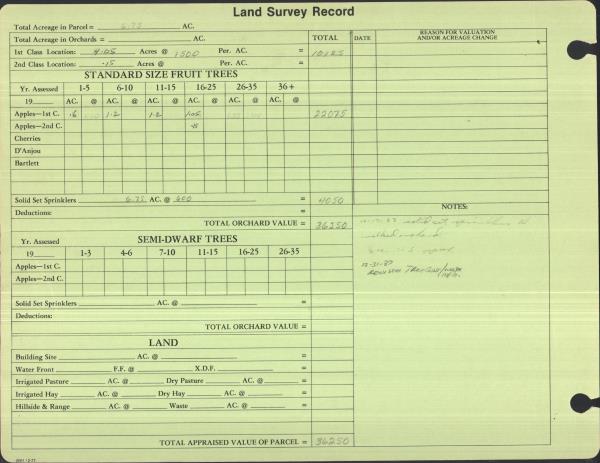 Land Survey Record
Total Acreage in Parcel = 6.75 AC.
Total Acreage in Orchards = AC. TOTAL DATE REASON FOR VALUATION AND/OR ACREAGE CHANGE
1st Class Location: Acres @ 1500 Per. AC. = 10125
2nd Class Location: .15 Acres @ Per. AC. =
STANDARD SIZE FRUIT TREES
Yr. Assessed 1-5 6-10 11-15 16-25 26-35 36+
19 AC. @ AC. @ AC. @ AC. @ AC. @ AC. @
Apples—1st C. .6 1.2 1.2 22075
Apples—2nd C. .5
Cherries
D'Anjou
Bartlett
Solid Set Sprinklers 6.75 AC. @ 600 = 4050
NOTES:
Deductions: =
TOTAL ORCHARD VALUE = 36250
SEMI-DWARF TREES
Yr. Assessed
19 1-3 4-6 7-10 11-15 16-25 26-35
Apples—1st C.
Apples—2nd C.
Solid Set Sprinklers AC. @ =
Deductions:
TOTAL ORCHARD VALUE =
LAND
Building Site AC. @ =
Water Front F.F. @ X.D.F. =
Irrigated Pasture AC. @ Dry Pasture AC. @ =
Irrigated Hay AC. @ Dry Hay AC. @ =
Hillside & Range AC. @ Waste AC. @ =
TOTAL APPRAISED VALUE OF PARCEL = 36250